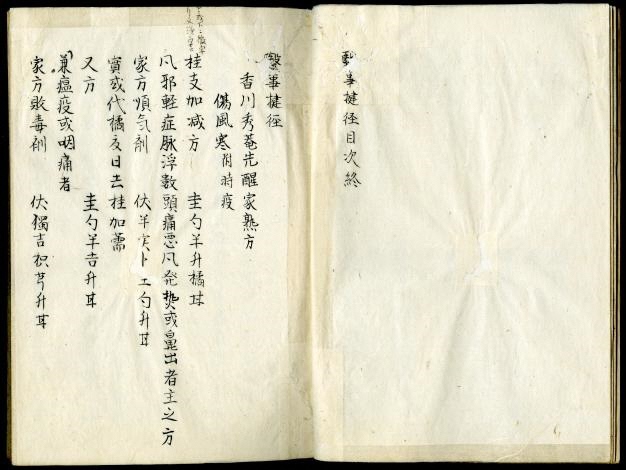 毉事揵径目次終
毉事揵径
香川秀菴先醒家熟方
傷風寒附時疫
桂支加减方 圭勺羊升橘耳
凬邪軽症脉浮数頭痛悪凬発熱或鼻出者主之方
家方順気剤 伏羊実卜工勺升耳
實或代橘皮日去桂加薷
又方 圭勺羊吉升耳
兼瘟疫或咽痛者
家方敗毒剤 伏獨吉枳芎升耳